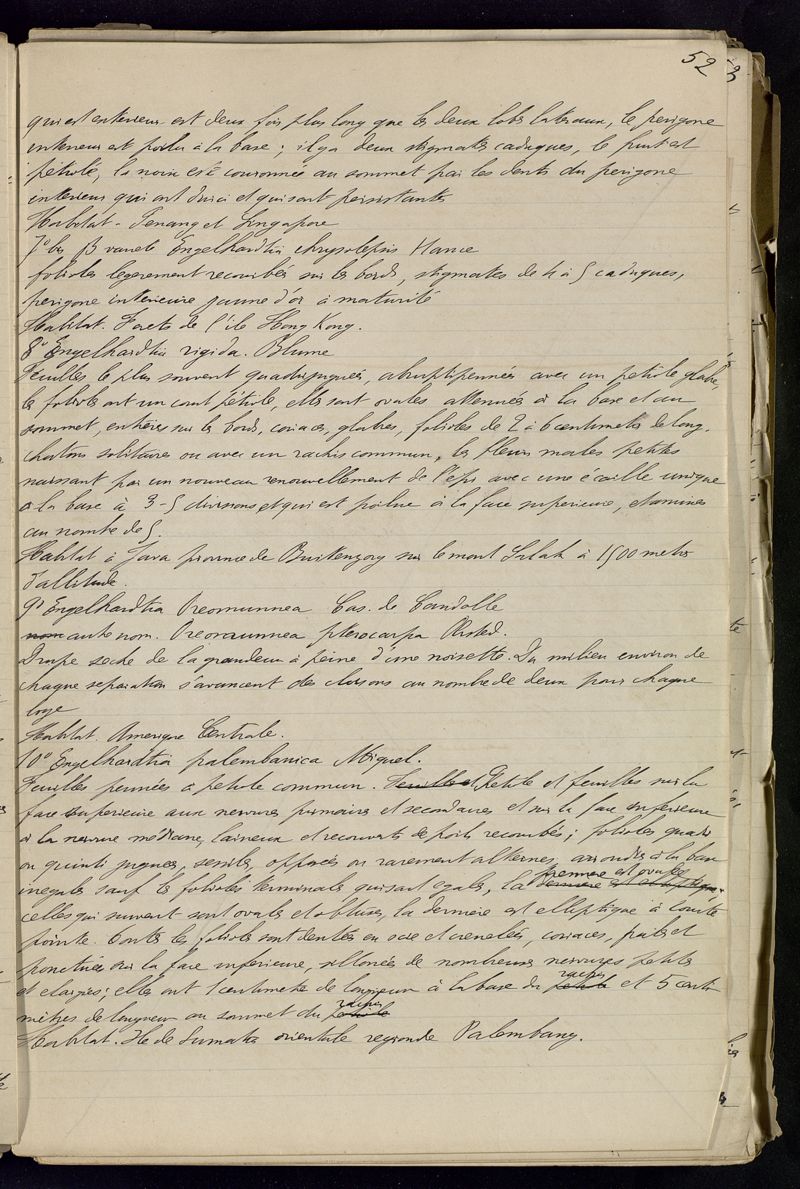 52
qui est exterieur est deux fois plus long que les deux lobes lateraux, le perigone
interieur est poilu à la base ; il y a deux stigmates caduques, le fruit est
pétiolé, la noix est couronnée au sommet par les dents du perigone
interieur qui ont durci et qui sont persistantes
Habitat - Penang et Singapore
7° bis β varieté Engelhardtia chrysolepis Hance
folioles legerement recourbées sur les bords, stigmates de 4 à 5 caduques,
perigone interieure jaune d'or à maturité
Habitat. Forets de l'ile Hong Kong.
8° Engelhardtia rigida. Blume
Feuilles le plus souvent quadrijuguées, abruptipennées avec un petiole glabre,
les folioles ont un court pétiole, elles sont ovales attenuées à la base et au
sommet, entières sur les bords, coriaces, glabres, folioles de 2 à 6 centimetres de long.
chatons solitaires ou avec un rachis commun, les fleurs males petites
naissant par un nouveau renouvellement de l'épi avec une écaille unique
à la base à 3-5 divisions et qui est poilue à la face superieure, etamines
au nombre de 5.
Habitat à Java province de Buitenzorg sur le mont Salak à 1500 metres
d'altitude.
9° Engelhardtia Oreomunnea Cas. de Candolle
nom autre nom. Oreomunnea pterocarpa Ørsted.
Drupe seche de la grandeur à peine d'une noisette. Du milieu environ de
chaque separation s'avancent des cloisons au nombre de deux pour chaque
loge
Habitat. Amerique Centrale.
10° Engelhardtia palembanica Miquel.
Feuilles pennées à petiole commun. Feuilles et Petiole et feuilles sur la
face superieure aux nervures primaires et secondaires et sur la face inferieure
à la nervure médiane, laineux et recouverts de poils recourbés ; folioles quadri
ou quinti juguées, sessiles, opposées ou rarement alternes, arrondies à la base
inegales sauf les folioles terminales qui sont egales, la premiere est ovale
derniere est elliptique
celles qui suivent sont ovales et obtuses, la derniere est elliptique à courte
pointe. Toutes les folioles sont dentées en scie et crenelées, coriaces, pales et
ponctuées sur la face inferieure, sillonées de nombreuses nervures petites
et elargies ; elles ont 1 centimetre de longueur à la base du petiole rachis et 5 centi
mètres de longueur au sommet du petiole rachis
Habitat. Ile de Sumatra orientale region de Palembang.